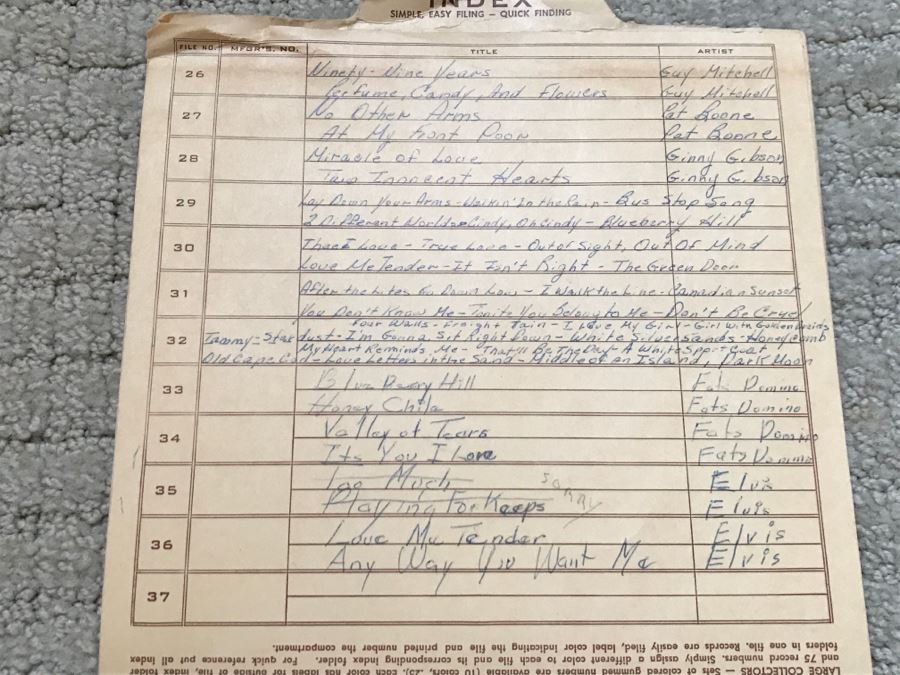 INDEX
SIMPLE, EASY FILING – QUICK FINDING
FILE NO. MFGR'S. NO. TITLE ARTIST
26 Ninety-Nine Years Guy Mitchell
Perfume, Candy, And Flowers Guy Mitchell
27 No Other Arms Pat Boone
At My Front Door Pat Boone
28 Miracle of Love Ginny Gibson
Two Innocent Hearts Ginny Gibson
29 Lay Down Your Arms - Walkin' In the Rain - Bus Stop Song
2 Different Worlds - Cindy, Oh Cindy - Blueberry Hill
30 Thee I Love - True Love - Out of Sight, Out Of Mind
Love Me Tender - It Isn't Right - The Green Door
31 After the Lites Go Down Low - I Walk the Line - Canadian Sunset
You Don't Know Me - Tonite You Belong to Me - Don't Be Cruel
Four Walls - Freight Tain - I Love My Girl - Girl With Golden Braids
32 Tammy - Stardust - I'm Gonna Sit Right Down - White Silver Sands - Honeycomb
My Heart Reminds Me - That'll Be The Day - A White Sport Coat
Old Cape Cod - Love Letters in the Sand - Middle of an Island, Dark Moon
33 Blue Berry Hill Fats Domino
Honey Chile Fats Domino
34 Valley of Tears Fats Domino
Its You I Love Fats Domino
35 Too Much Elvis
Playing For Keeps SORRY Elvis
36 Love Me Tender Elvis
Any Way You Want Me Elvis
37
LARGE COLLECTORS — Sets of colored gummed numbers are available (10 colors,
and 75 record numbers. Simply assign a different color to each file and its corresponding index folder. For quick reference put all index
folders in one file. Records are easily filed, label color indicating the file and printed number the compartment.